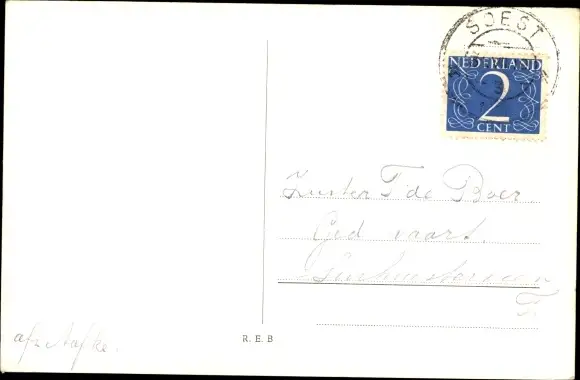 SOEST
NEDERLAND
2
CENT
Zuster T de Boer
Ged vaart.
R. E. B.
afz Aafke.